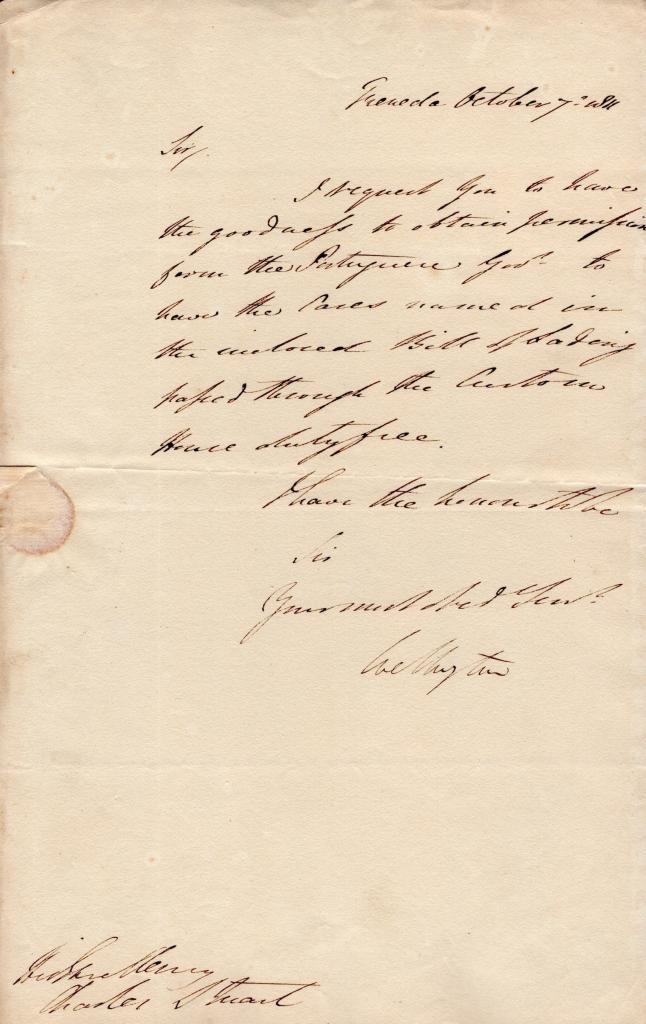 Freneda October 7th 1811
Sir/
I request You to have
the goodness to obtain permission
from the Portuguese Govt. to
have the Cases named in
the inclosed Bill of Lading
passed through the Custom
House duty free.
I have the honor to be
Sir
Your most obed Servt.
Wellington
Charles Stuart